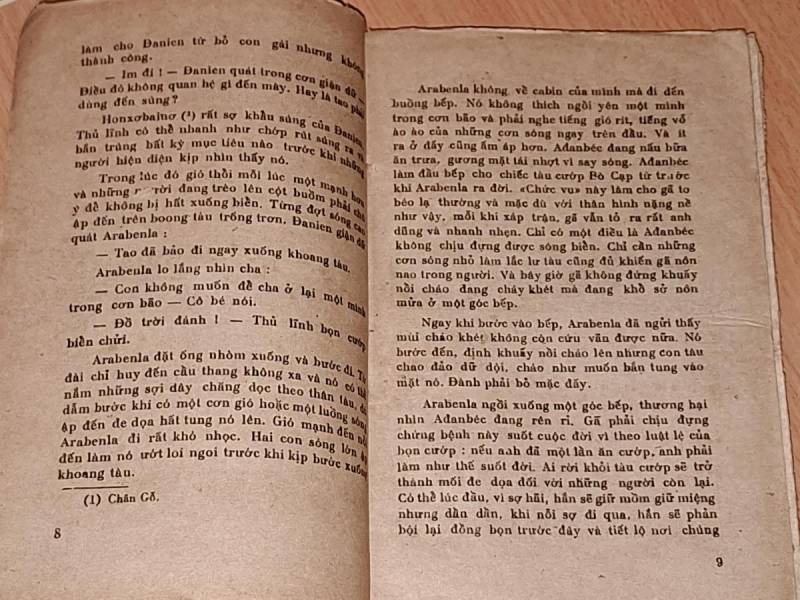 làm cho Đanien từ bỏ con gái nhưng không
thành công.
— Im đi ! — Đanien quát trong cơn giận dữ —
Điều đó không quan hệ gì đến mày. Hay là tao phải
dùng đến súng ?
Honxơbainơ (¹) rất sợ khẩu súng của Đanien.
Thủ lĩnh có thể nhanh như chớp rút súng ra và
bắn trúng bất kỳ mục tiêu nào trước khi những
người hiện diện kịp nhìn thấy nó.
Trong lúc đó gió thổi mỗi lúc một mạnh hơn
và những người đang trèo lên cột buồm phải chú
ý để không bị hất xuống biển. Từng đợt sóng cao
ập đến trên boong tàu trống trơn. Đanien giận dữ
quát Arabenla :
— Tao đã bảo đi ngay xuống khoang tàu.
Arabenla lo lắng nhìn cha :
— Con không muốn để cha ở lại một mình
trong cơn bão — Cô bé nói.
— Đồ trời đánh ! — Thủ lĩnh bọn cướp
biển chửi.
Arabenla đặt ống nhòm xuống và bước đi. Từ
đài chỉ huy đến cầu thang không xa và nó có thể
nắm những sợi dây chăng dọc theo thân tàu, để
dẫm bước khi có một cơn gió hoặc một luồng sóng
ập đến đe dọa hất tung nó lên. Gió mạnh đến nỗi
Arabenla đi rất khó nhọc. Hai con sóng lớn ập
đến làm nó ướt loi ngoi trước khi kịp bước xuống
khoang tàu.
(1) Chân Gỗ.
8
Arabenla không về cabin của mình mà đi đến
buồng bếp. Nó không thích ngồi yên một mình
trong cơn bão và phải nghe tiếng gió rít, tiếng vỗ
ào ào của những cơn sóng ngay trên đầu. Và ít
ra ở đấy cũng ấm áp hơn. Ađanbéc đang nấu bữa
ăn trưa, gương mặt tái nhợt vì say sóng. Ađanbéc
làm đầu bếp cho chiếc tàu cướp Bò Cạp từ trước
khi Arabenla ra đời. «Chức vụ» này làm cho gã to
béo lạ thường và mặc dù với thân hình nặng nề
như vậy, mỗi khi xáp trận, gã vẫn tỏ ra rất anh
dũng và nhanh nhẹn. Chỉ có một điều là Ađanbéc
không chịu đựng được sóng biển. Chỉ cần những
cơn sóng nhỏ làm lắc lư tàu cũng đủ khiến gã nôn
nao trong người. Và bây giờ gã không đứng khuấy
nồi cháo đang cháy khét mà đang khổ sở nôn
mửa ở một góc bếp.
Ngay khi bước vào bếp, Arabenla đã ngửi thấy
mùi cháo khét không còn cứu vãn được nữa. Nó
bước đến, định khuấy nồi cháo lên nhưng con tàu
chao đảo dữ dội, cháo như muốn bắn tung vào
mặt nó. Đành phải bỏ mặc đấy.
Arabenla ngồi xuống một góc bếp, thương hại
nhìn Ađanbéc đang rên rỉ. Gã phải chịu đựng
chứng bệnh này suốt cuộc đời vì theo luật lệ của
bọn cướp : nếu anh đã một lần ăn cướp, anh phải
làm như thế suốt đời. Ai rời khỏi tàu cướp sẽ trở
thành mối đe dọa đối với những người còn lại.
Có thể lúc đầu, vì sợ hãi, hắn sẽ giữ mồm giữ miệng
nhưng dần dần, khi nỗi sợ đi qua, hắn sẽ phản
bội lại đồng bọn trước đây và tiết lộ nơi chúng
9